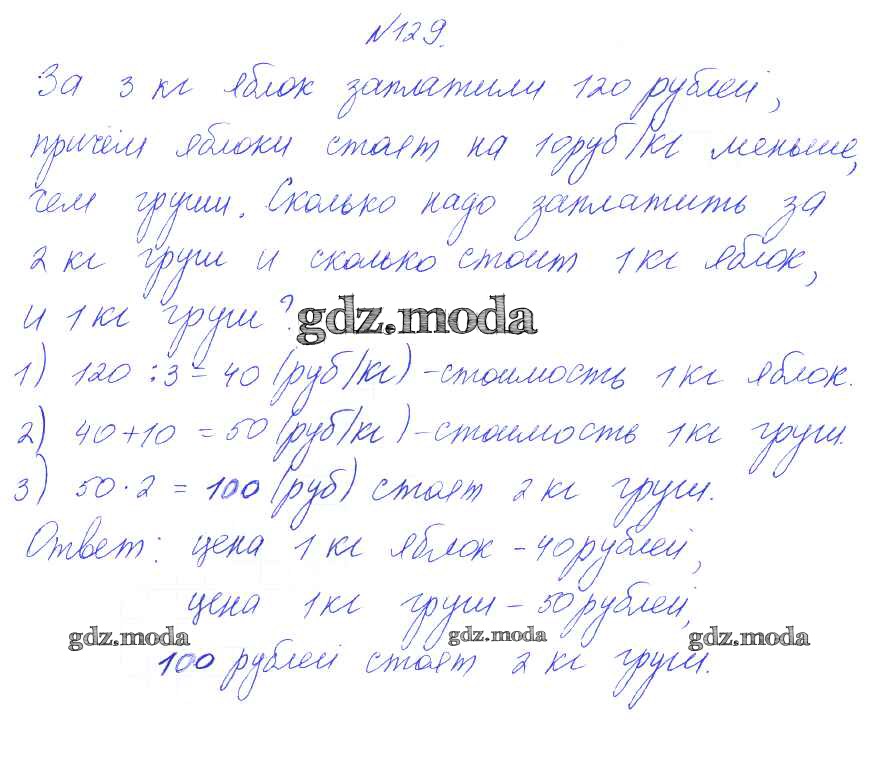 №129.
За 3 кг яблок заплатили 120 рублей,
причём яблоки стоят на 10руб/кг меньше,
чем груши. Сколько надо заплатить за
2 кг груш и сколько стоит 1 кг яблок,
и 1 кг груш?
gdz.moda
1) 120 : 3 = 40 (руб/кг) - стоимость 1 кг яблок.
2) 40+10 = 50 (руб/кг) - стоимость 1 кг груш.
3) 50 · 2 = 100 (руб) стоят 2 кг груш.
Ответ: цена 1 кг яблок - 40 рублей,
цена 1 кг груш - 50 рублей,
gdz.moda gdz.moda gdz.moda
100 рублей стоят 2 кг груш.